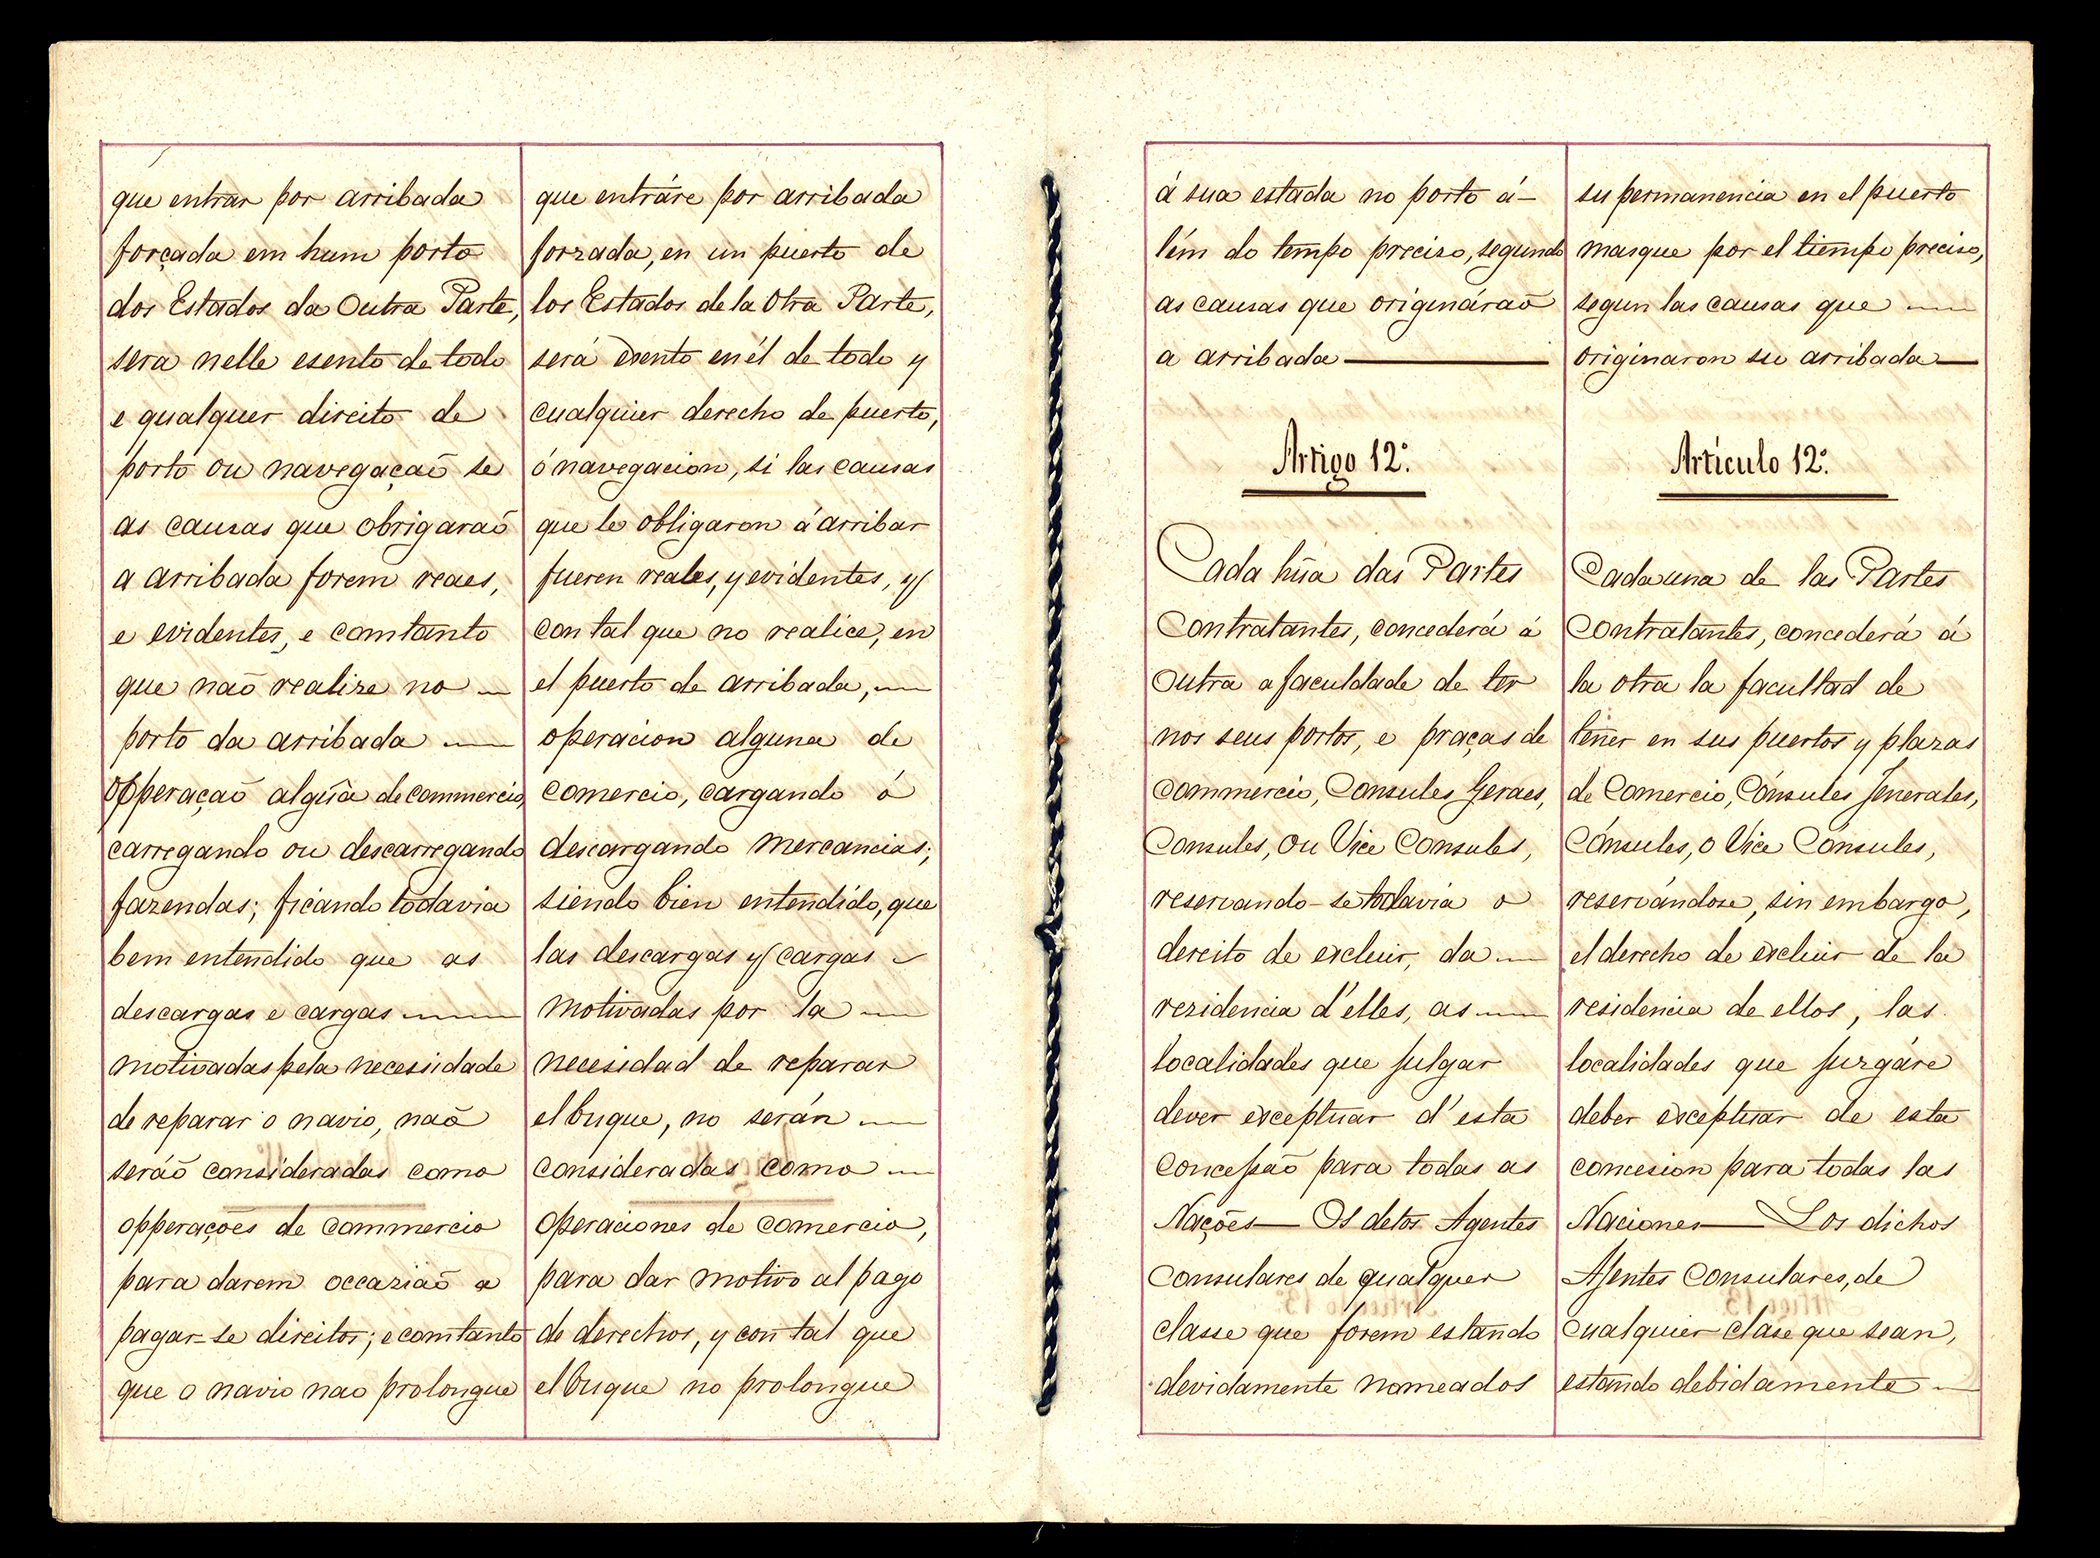 que entrar por arribada
forçada em hum porto
dos Estados da Outra Parte,
sera nelle esento de todo
e qualquer direito de
porto ou navegaçaõ se
as causas que obrigaraõ
a arribada forem reaes,
e evidentes, e comtanto
que naõ realize no
porto da arribada
opperaçaõ algũa de commercio,
carregando ou descarregando
fazendas; ficando todavia
bem entendido que as
descargas e cargas
motivadas pela necessidade
de reparar o navio, naõ
seráõ consideradas como
opperações de commercio
para darem occaziaõ a
pagar-se direitos; e comtanto
que o navio nao prolongue
que entráre por arribada
forzada, en un puerto de
los Estados de la Otra Parte,
será exento en él de todo y
cualquier derecho de puerto,
ó navegacion, si las causas
que le obligaron á arribar
fueren reales, y evidentes, y
con tal que no realice, en
el puerto de arribada,
operacion alguna de
comercio, cargando ó
descargando mercancias;
siendo bien entendido, que
las descargas y cargas
motivadas por la
necesidad de reparar
el buque, no serán
consideradas como
operaciones de comercio,
para dar motivo al pago
de derechos, y con tal que
el buque no prolongue
á sua estada no porto á-
lém do tempo precizo, segundo
as causas que origináraõ
a arribada
Artigo 12.º
Cada hũa das Partes
Contratantes, concederá á
Outra a faculdade de ter
nos seus portos, e praças de
commercio, Consules Geraes,
Consules, ou Vice Consules,
reservando-se todavia o
dereito de excluir, da
rezidencia d'elles, as
localidades que julgar
dever exceptuar d'esta
concessaõ para todas as
Nações — Os detos Agentes
Consulares de qualquer
classe que forem estando
devidamente nomeados
su permanencia en el puerto
mas que por el tiempo preciso,
segun las causas que
originaron su arribada
Artículo 12.º
Cada una de las Partes
Contratantes, concederá á
la otra la facultad de
tener en sus puertos y plazas
de Comercio, Cónsules Jenerales,
Cónsules, o Vice Cónsules,
reservándose, sin embargo,
el derecho de excluir de la
residencia de ellos, las
localidades que juzgáre
deber exceptuar de esta
concesion para todas las
Naciones — Los dichos
Ajentes Consulares, de
cualquier clase que sean,
estando debidamente